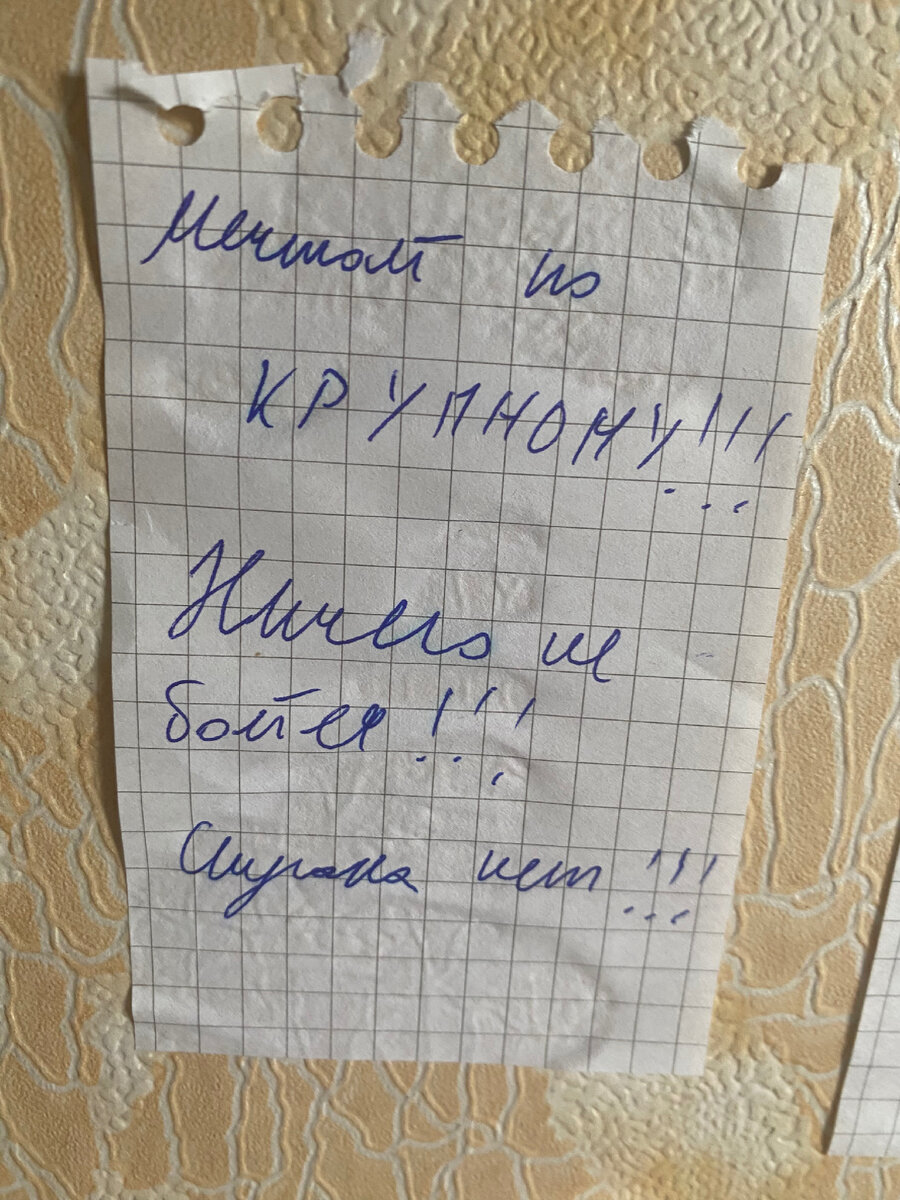 Мечтай по
КРУПНОМУ!!!
Ничего не
бойся!!!
Страха нет!!!